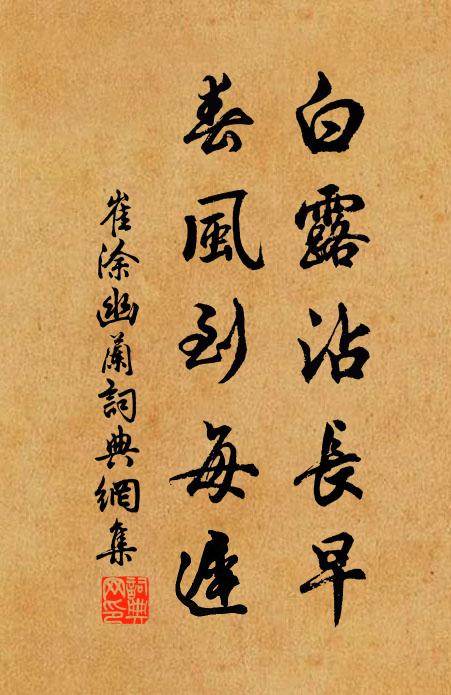 白露沾長早
春風到每遲
崔涂幽蘭詞典網集
詞典網印